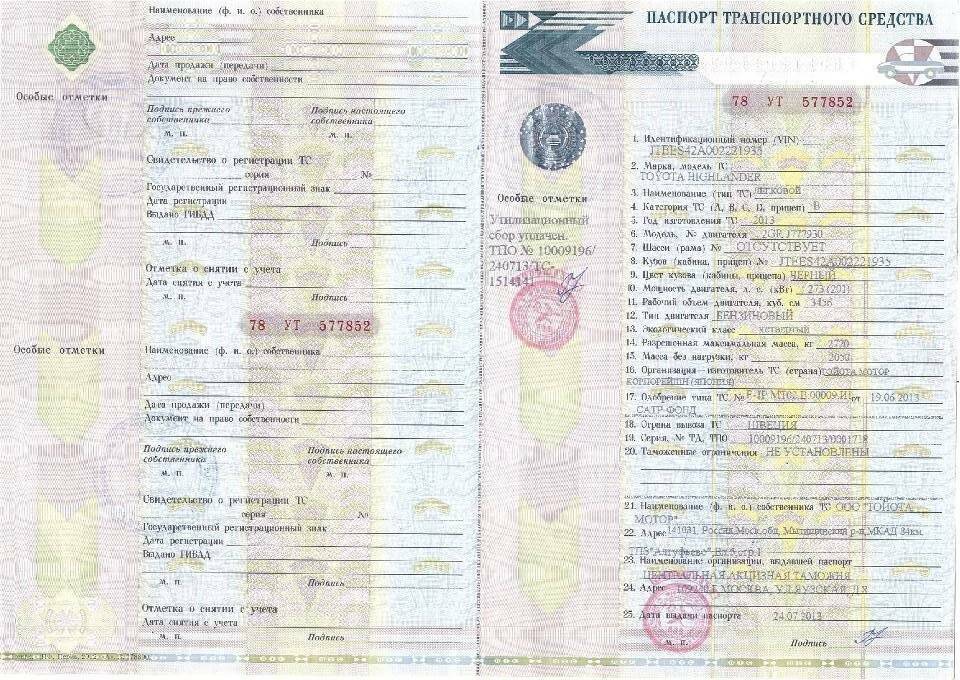 Наименование (ф. и. о.) собственника
Адрес
Дата продажи (передачи)
Документ на право собственности
Особые отметки
Подпись прежнего собственника
Подпись настоящего собственника
м. п.
м. п.
Свидетельство о регистрации ТС
серия №
Государственный регистрационный знак
Дата регистрации
Выдано ГИБДД
м. п. Подпись
Отметка о снятии с учета
Дата снятия с учета
м. п. Подпись
78 УТ 577852
Особые отметки
Наименование (ф. и. о.) собственника
Адрес
Дата продажи (передачи)
Документ на право собственности
Подпись прежнего собственника
Подпись настоящего собственника
м. п.
м. п.
Свидетельство о регистрации ТС
серия №
Государственный регистрационный знак
Дата регистрации
Выдано ГИБДД
м. п. Подпись
Отметка о снятии с учета
Дата снятия с учета
м. п. Подпись
ПАСПОРТ ТРАНСПОРТНОГО СРЕДСТВА
78 УТ 577852
Особые отметки
Утилизационный
сбор уплачен.
ТПО № 10009196/
240713/ТС-
1514141
1. Идентификационный номер (VIN)
JTEES42A002221935
2. Марка, модель ТС
TOYOTA HIGHLANDER
3. Наименование (тип ТС) ЛЕГКОВОЙ
4. Категория ТС (A, B, C, D, прицеп) B
5. Год изготовления ТС 2013
6. Модель, № двигателя 2GR J777930
7. Шасси (рама) № ОТСУТСТВУЕТ
8. Кузов (кабина, прицеп) № JTEES42A002221935
9. Цвет кузова (кабины, прицепа) ЧЕРНЫЙ
10. Мощность двигателя, л. с. (кВт) 273 (201)
11. Рабочий объем двигателя, куб. см 3456
12. Тип двигателя БЕНЗИНОВЫЙ
13. Экологический класс четвертый
14. Разрешенная максимальная масса, кг 2720
15. Масса без нагрузки, кг 2050
16. Организация - изготовитель ТС (страна) ТОЙОТА МОТОР
КОРПОРЕЙШН (ЯПОНИЯ)
17. Одобрение типа ТС № E-JP.MT02.B.00009.И1 от 19.06.2013
САТР-ФОНД
18. Страна вывоза ТС ШВЕЦИЯ
19. Серия, № ТД, ТПО 10009196/240713/0001718
20. Таможенные ограничения НЕ УСТАНОВЛЕНЫ
21. Наименование (ф. и. о.) собственника ТС ООО "ТОЙОТА
МОТОР"
22. Адрес 141031, Россия,Моск.обл, Мытищинский р-н,МКАД 84км,
ТПЗ"Алтуфьево",Вл.5,стр.1
23. Наименование организации, выдавшей паспорт
ЦЕНТРАЛЬНАЯ АКЦИЗНАЯ ТАМОЖНЯ
24. Адрес 109240,Г.МОСКВА, УЛ.ЯУЗСКАЯ, Д.8
25. Дата выдачи паспорта 24.07.2013
м. п. Подпись